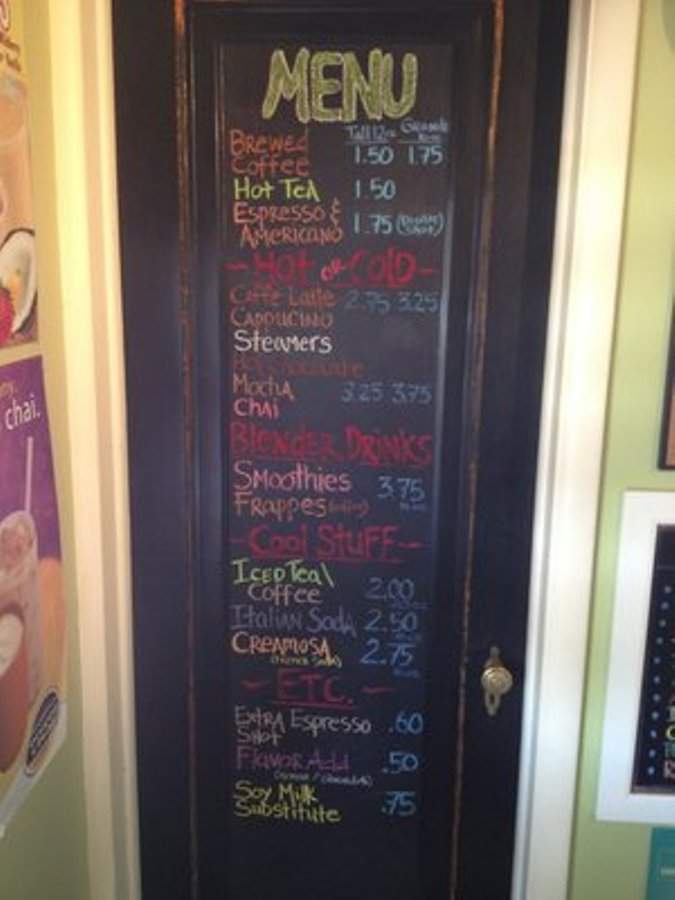 MENU
Tall 12oz Grande
Brewed Coffee 1.50 1.75
Hot Tea 1.50
Espresso &
Americano 1.75 (Double Shot)
- Hot or Cold -
Caffe Latte 2.75 3.25
Cappucino
Steamers
Hot Chocolate
Mocha 3.25 3.75
Chai
Blender Drinks
Smoothies 3.75
Frappes (coffee)
- Cool Stuff -
Iced Tea\
Coffee 2.00
Italian Soda 2.50
Creamosa 2.75
- ETC. -
Extra Espresso .60
Shot
Flavor Add .50
Soy Milk .75
Substitute
chai.